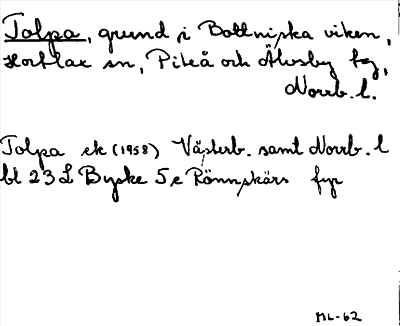 Tolpa, grund i Bottniska viken,
Hortlax sn, Piteå och Älvsby tg,
Norrb. l.
Tolpa ek (1958) Västerb. samt Norrb. l
bl 23 L Byske 5 e Rönnskärs fyr
ML-62